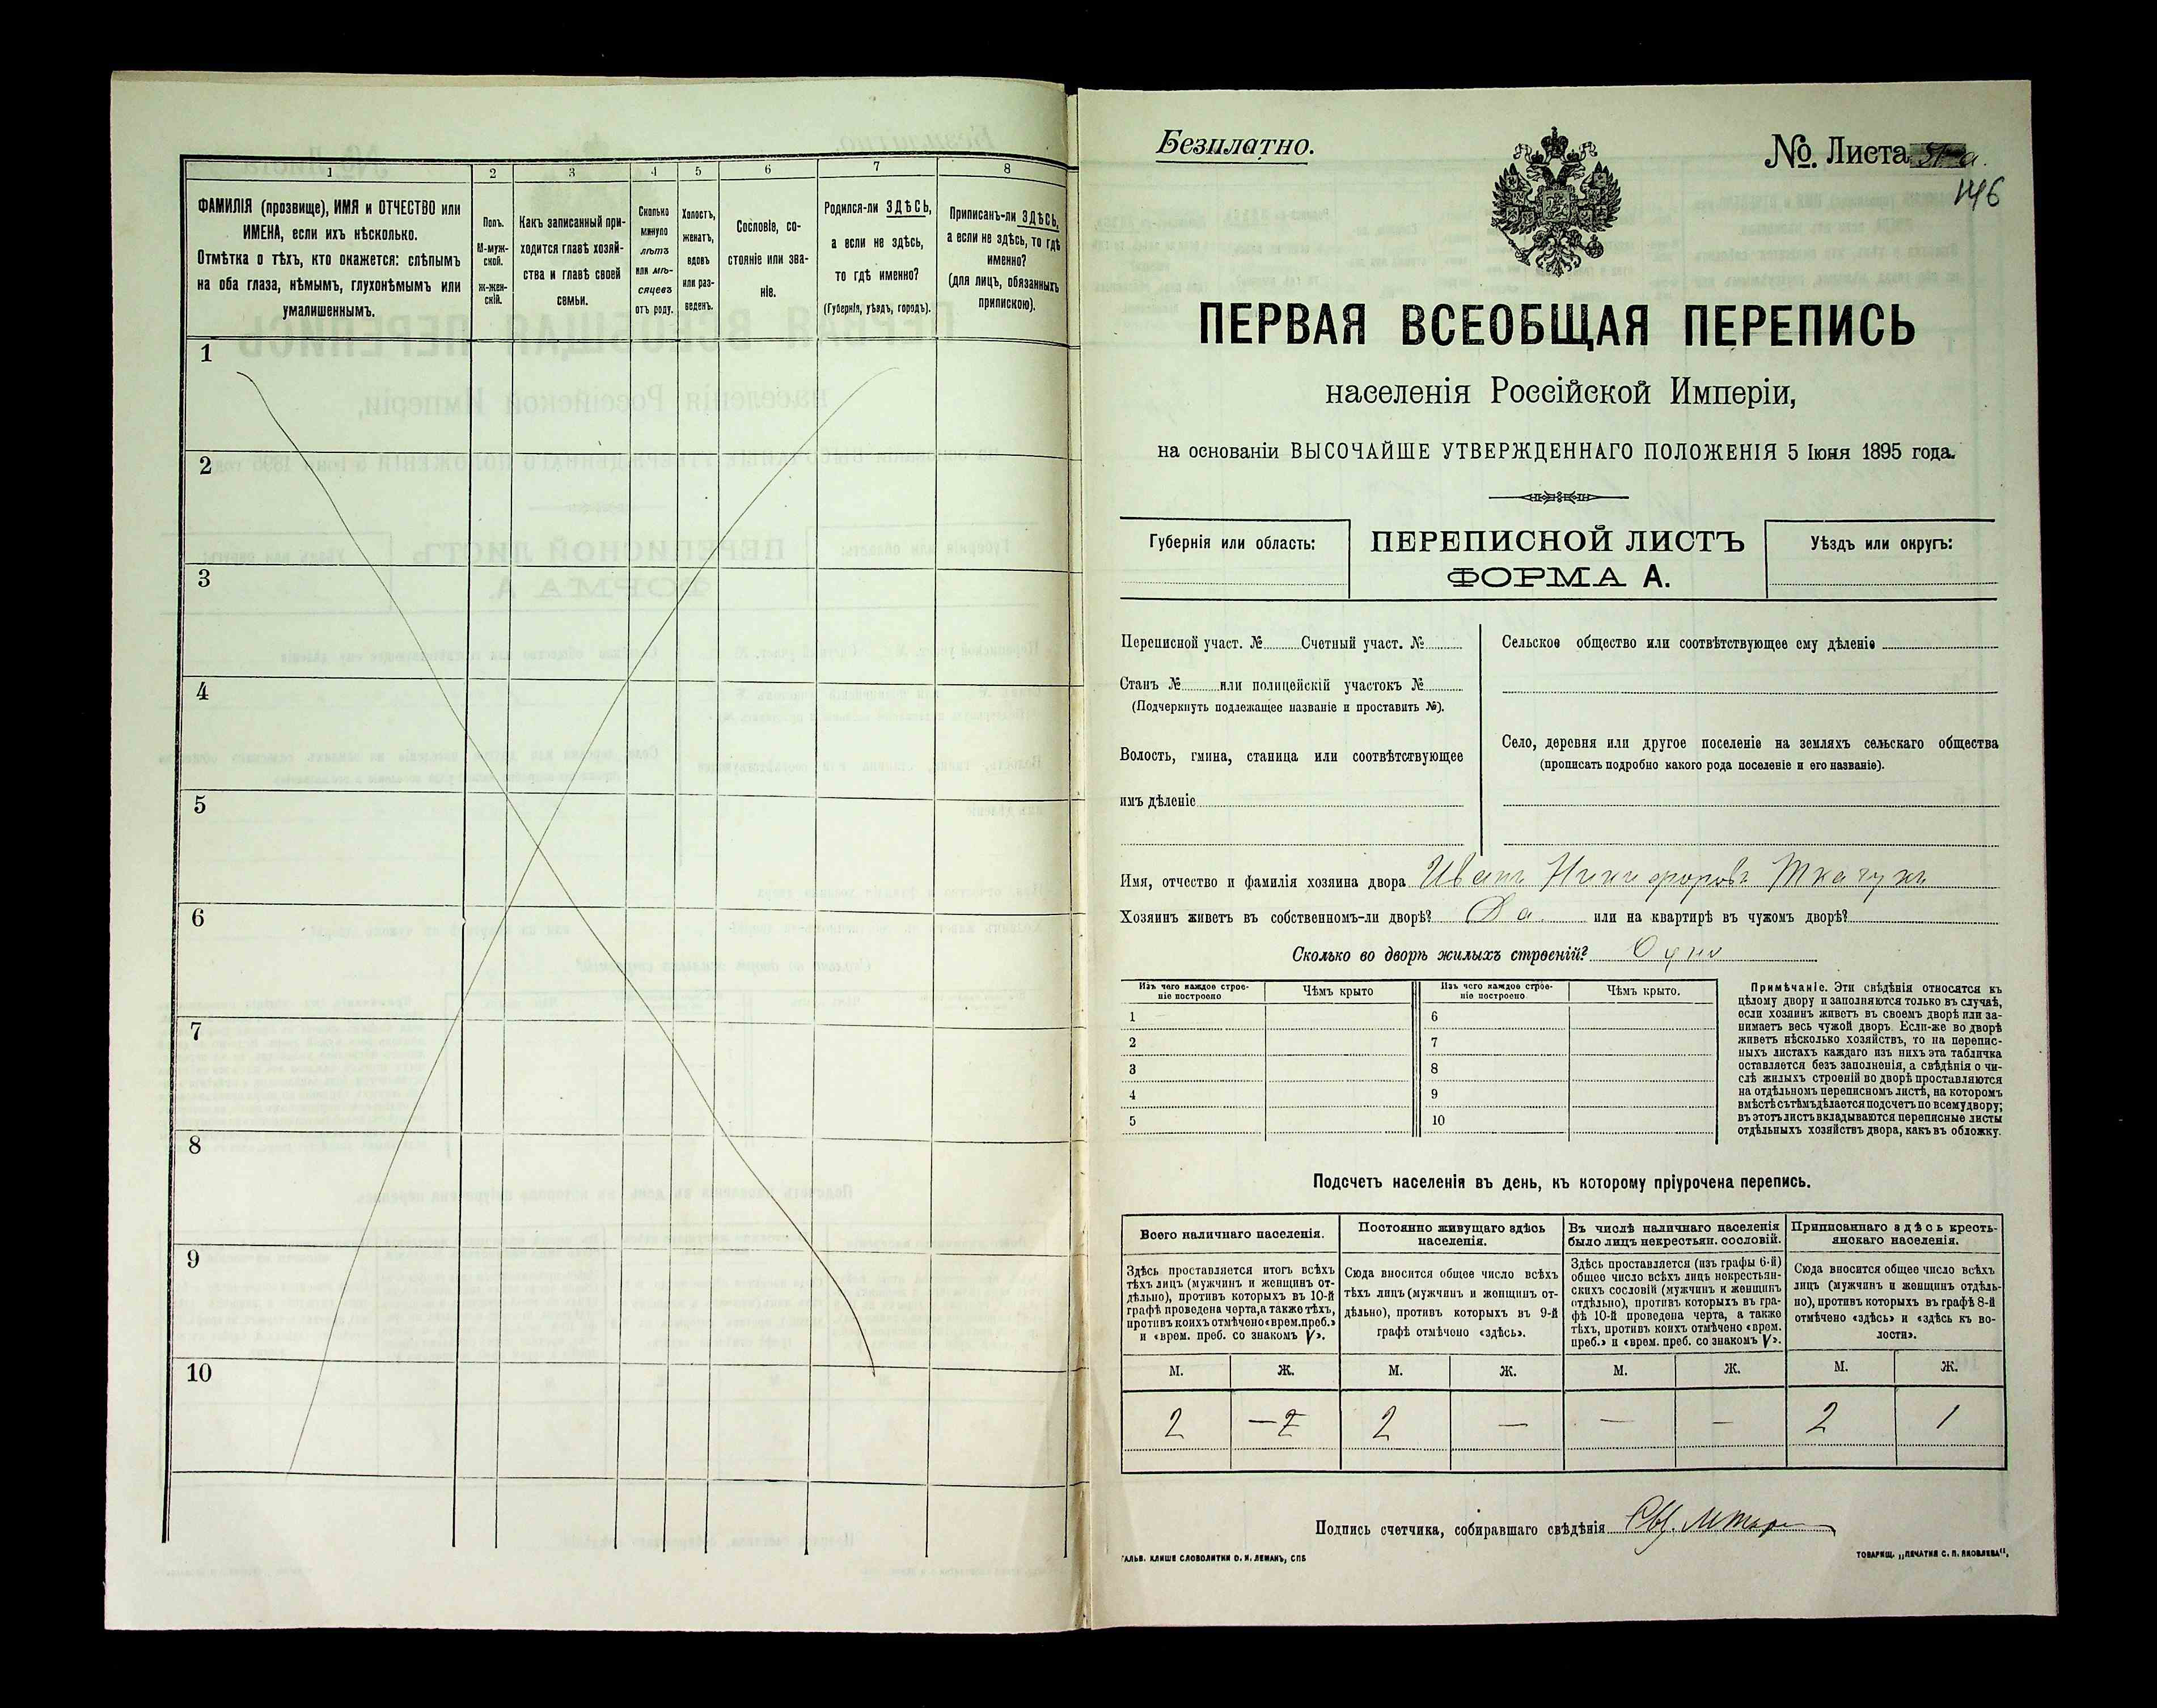 1 2 3 4 5 6 7 8
ФАМИЛІЯ (прозвище), ИМЯ и ОТЧЕСТВО или
ИМЕНА, если ихъ нѣсколько.
Отмѣтка о тѣхъ, кто окажется: слѣпымъ
на оба глаза, нѣмымъ, глухонѣмымъ или
умалишеннымъ.
Полъ.
М-муж-
ской.
ж-жен-
скій.
Какъ записанный при-
ходится главѣ хозяй-
ства и главѣ своей
семьи.
Сколько
минуло
лѣтъ
или мѣ-
сяцевъ
отъ роду.
Холостъ,
женатъ,
вдовъ
или раз-
веденъ.
Сословіе, со-
стояніе или зва-
ніе.
Родился-ли ЗДѢСЬ,
а если не здѣсь,
то гдѣ именно?
(Губернія, уѣздъ, городъ).
Приписанъ-ли ЗДѢСЬ,
а если не здѣсь, то гдѣ
именно?
(для лицъ, обязанныхъ
припискою).
1
2
3
4
5
6
7
8
9
10
Безплатно.
№. Листа
146
ПЕРВАЯ ВСЕОБЩАЯ ПЕРЕПИСЬ
населенія Россійской Имперіи,
на основаніи ВЫСОЧАЙШЕ УТВЕРЖДЕННАГО ПОЛОЖЕНІЯ 5 Іюня 1895 года.
Губернія или область:
ПЕРЕПИСНОЙ ЛИСТЪ
ФОРМА А.
Уѣздъ или округъ:
Переписной участ. № Счетный участ. №
Станъ № или полицейскій участокъ №
(Подчеркнуть подлежащее названіе и проставить №).
Волость, гмина, станица или соотвѣтствующее
имъ дѣленіе
Сельское общество или соотвѣтствующее ему дѣленіе
Село, деревня или другое поселеніе на земляхъ сельскаго общества
(прописать подробно какого рода поселеніе и его названіе).
Имя, отчество и фамилія хозяина двора Иванъ Никифоровъ Ткачукъ
Хозяинъ живетъ въ собственномъ-ли дворѣ? Да или на квартирѣ въ чужомъ дворѣ?
Сколько во дворѣ жилыхъ строеній? Одно
Изъ чего каждое строе-
ніе построено
Чѣмъ крыто
Изъ чего каждое строе-
ніе построено
Чѣмъ крыто.
1 6
2 7
3 8
4 9
5 10
Примѣчаніе. Эти свѣдѣнія относятся къ
цѣлому двору и заполняются только въ случаѣ,
если хозяинъ живетъ въ своемъ дворѣ или за-
нимаетъ весь чужой дворъ. Если-же во дворѣ
живетъ нѣсколько хозяйствъ, то на перепис-
ныхъ листахъ каждаго изъ нихъ эта табличка
оставляется безъ заполненія, а свѣдѣнія о чи-
слѣ жилыхъ строеній во дворѣ проставляются
на отдѣльномъ переписномъ листѣ, на которомъ
вмѣстѣ съ тѣмъ дѣлается подсчетъ по всему двору;
въ этотъ листъ вкладываются переписные листы
отдѣльныхъ хозяйствъ двора, какъ въ обложку.
Подсчетъ населенія въ день, къ которому пріурочена перепись.
Всего наличнаго населенія.
Здѣсь проставляется итогъ всѣхъ
тѣхъ лицъ (мужчинъ и женщинъ от-
дѣльно), противъ которыхъ въ 10-й
графѣ проведена черта, а также тѣхъ,
противъ коихъ отмѣчено «врем. преб.»
и «врем. преб. со знакомъ V».
Постоянно живущаго здѣсь
населенія.
Сюда вносится общее число всѣхъ
тѣхъ лицъ (мужчинъ и женщинъ от-
дѣльно), противъ которыхъ въ 9-й
графѣ отмѣчено «здѣсь».
Въ числѣ наличнаго населенія
было лицъ некрестьян. сословій.
Здѣсь проставляется (изъ графы 6-й)
общее число всѣхъ лицъ некрестьян-
скихъ сословій (мужчинъ и женщинъ
отдѣльно), противъ которыхъ въ гра-
фѣ 10-й проведена черта, а также
тѣхъ, противъ коихъ отмѣчено «врем.
преб.» и «врем. преб. со знакомъ V».
Приписаннаго здѣсь кресть-
янскаго населенія.
Сюда вносится общее число всѣхъ
лицъ (мужчинъ и женщинъ отдѣль-
но), противъ которыхъ въ графѣ 8-й
отмѣчено «здѣсь» и «здѣсь къ во-
лости».
М. Ж. М. Ж. М. Ж. М. Ж.
2 — 2 — — — 2 1
Подпись счетчика, собиравшаго свѣдѣнія
ГАЛЬВ. КЛИШЕ СЛОВОЛИТНИ О. И. ЛЕМАНЪ, СПБ
ТОВАРИЩ. „ПЕЧАТНЯ С. П. ЯКОВЛЕВА“,